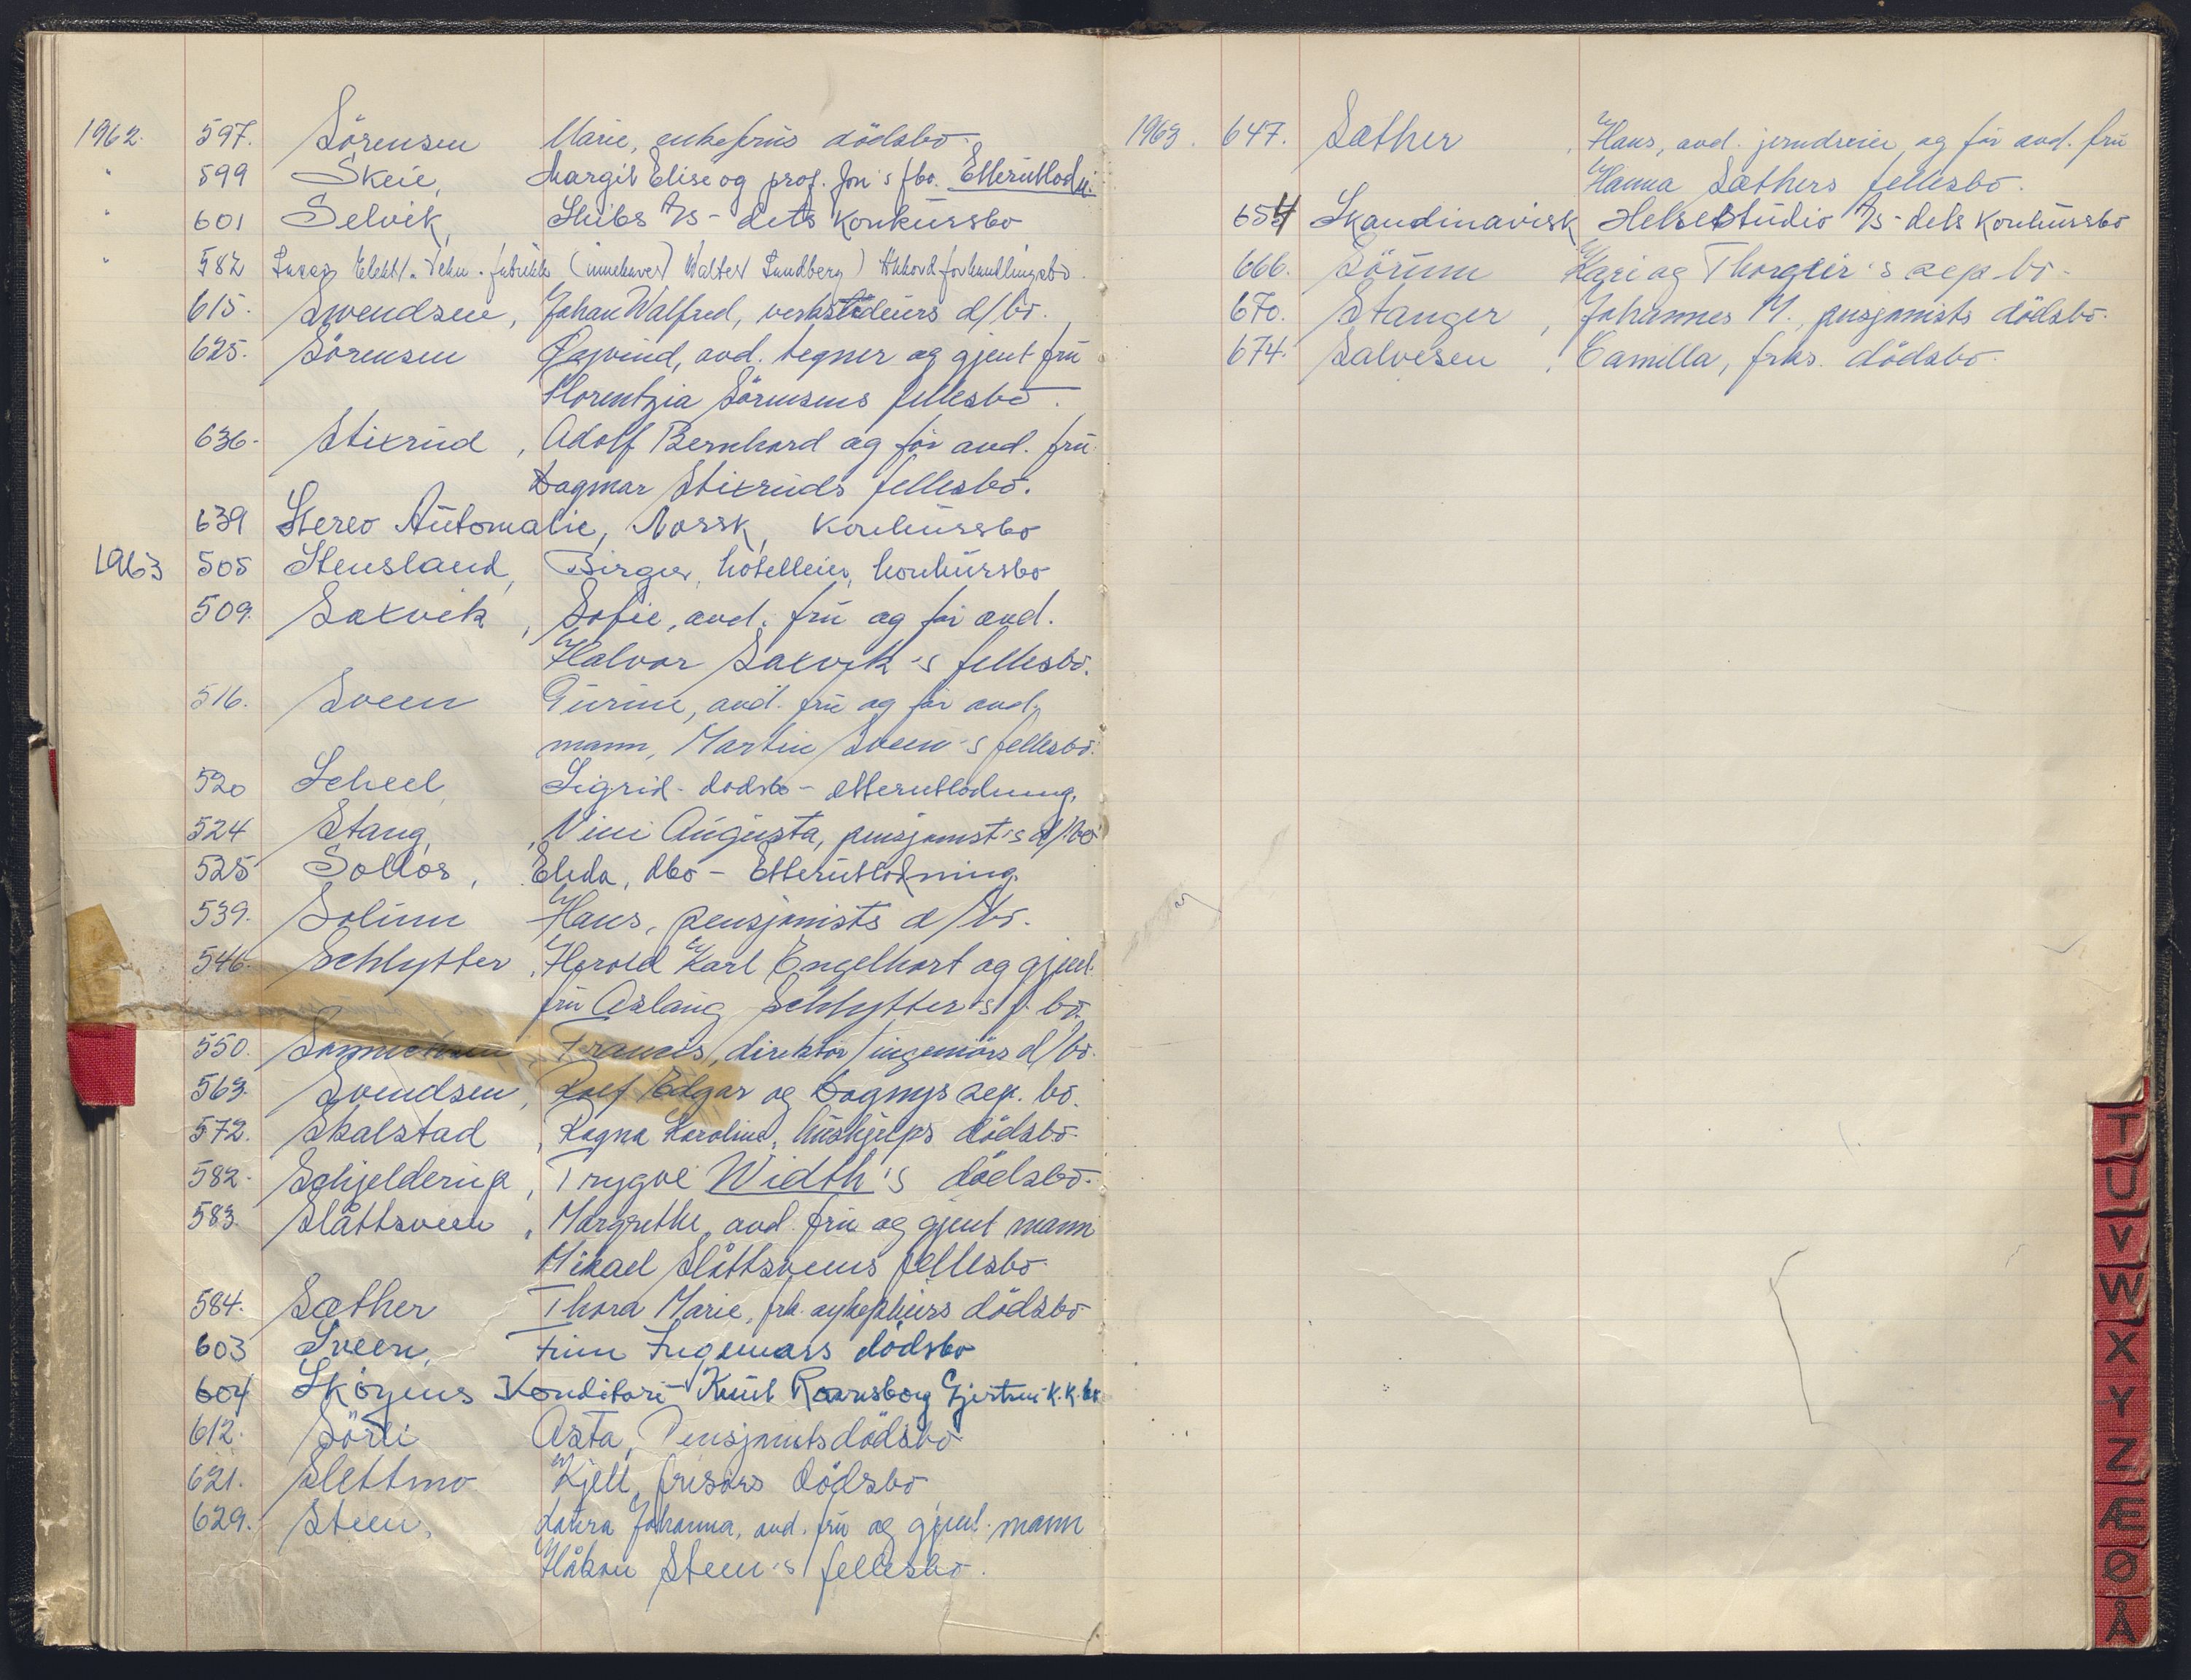 1962. 597. Sörensen Marie, enkefrus dödsbo.
" 599 Skeie, Margit Elise og prof. Jon's fbo. Etterutlodn.
" 601 Selvik, Skibs A/S - dets konkursbo
" 582 Elekt. Tekn. fabrikk (innehaver Walter Sundberg) Akkordforhandlingsbo.
615. Swendsen, Johan Walfred, verksteders d/bo.
625. Sörensen Øyvind, avd. tegner og gjenl. fru
Florentzia Sörensens fellesbo.
636. Stixrud, Adolf Bernhard og för avd. fru
Dagmar Stixruds fellesbo.
639 Stereo Automatic, Norsk, konkursbo
1963 505 Stensland, Birger, hotelleier, konkursbo
509. Saxvik, Sofie, avd. fru og för avd.
Halvor Saxvik's fellesbo.
516. Sveen Gurine, avd. fru og för avd.
mann, Martin Sveen's fellesbo.
520 Scheel, Sigrid - dödsbo - etterutlodning.
524 Stang, Vivi Augusta, pensjonist's d/bo
525 Sollos, Elida, dbo - Etterutlodning.
539. Solum Hans, pensjonists d/bo.
546. Schlytter, Harold Karl Engelhart og gjenl.
fru Aslaug Schlytter's f. bo.
550. Francis, direktör/ingeniörs d/bo.
563. Svendsen, Rolf Edgar og Dagnys sep. bo.
572. Skalstad, Ragna Karoline, hushjelps dödsbo.
582. Schjelderup, Trygve Width's dödsbo.
583. Slåttsveen, Margrethe, avd. fru og gjenl mann
Mikael Slåttsveens fellesbo.
584. Sæther Thora Marie, frk. sykepleiers dödsbo
603 Sveen, Finn Ingemars dödsbo
604 Skøyens Konditori - Knut Ravnsborg Gjertsen k.k.bo
612. Sörli Asta, Pensjonists dödsbo
621. Slettmo Kjell, frisörs dödsbo
629. Steen, Laura Johanna, avd. fru og gjenl. mann
Håkon Steen's fellesbo.
1963. 647. Sæther, Hans, avd. jerndreier og för avd. fru
Hanna Sæthers fellesbo.
654 Skandinavisk Helsestudio A/S - dets konkursbo
666. Sörum Kari og Thorgeir's sep bo.
670. Stanger, Johannes M., pensjonists dödsbo.
674. Salvesen, Camilla, frks. dödsbo.
T
U
V
W
X
Y
Z
Æ
Ø
Å